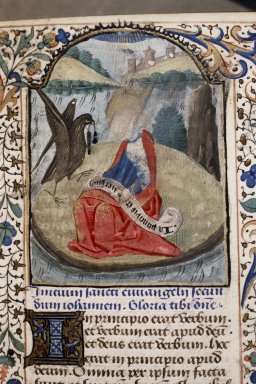 In principio er
Inicium sancti euuangelij secun
dum iohannem. Gloria tibi dñe
In principio erat verbum
et verbum erat apud deū.
et deus erat verbum. hoc
erat in principio apud
deum. omnia per ipsum facta